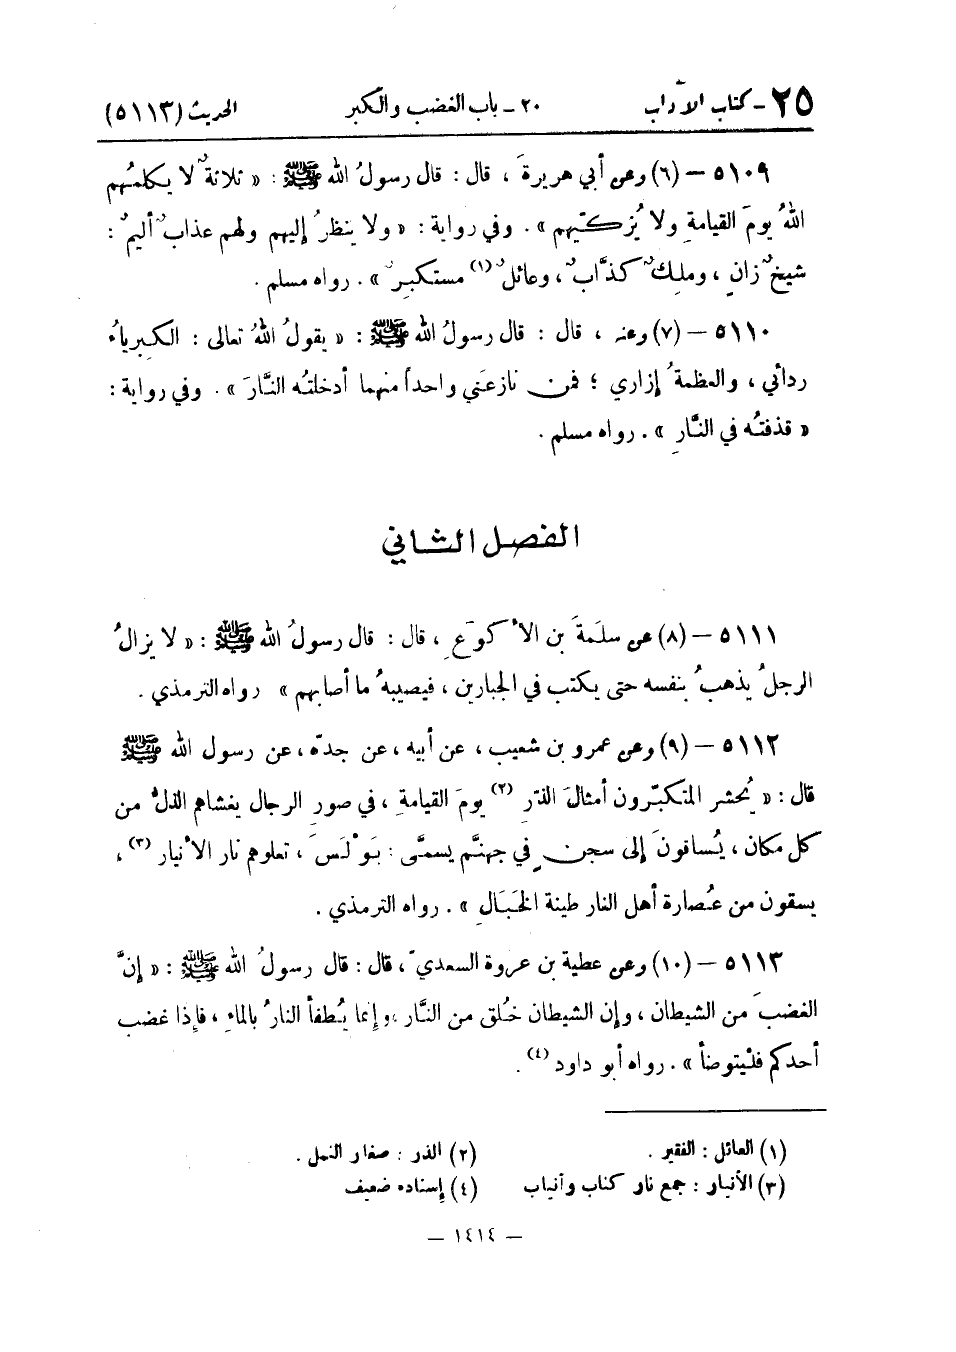 ٢٥ - كتاب الآداب ٢٠ - باب الغضب والكبر الحديث (٥١١٣)
٥١٠٩ - (٦) وعن أبي هريرةَ ، قال : قال رسولُ الله ﷺ : « ثلاثةٌ لا يكلمُهم
اللهُ يومَ القيامةِ ولا يُزكّيهم » . وفي رواية : « ولا ينظرُ إليهم ولهم عذابٌ أليمٌ :
شيخٌ زانٍ ، وملِكٌ كذَّابٌ ، وعائلٌ (١) مستكبِرٌ » . رواه مسلم .
٥١١٠ - (٧) وعنه ، قال : قال رسولُ الله ﷺ : « يقولُ اللهُ تعالى : الكبرياءُ
ردائي ، والعظمةُ إزاري ؛ فمن نازعَني واحداً منهما أدخلتُه النَّارَ » . وفي رواية :
« قذفتُه في النَّارِ » . رواه مسلم .
الفصل الثاني
٥١١١ - (٨) عن سلَمةَ بن الأكوَعِ ، قال : قال رسولُ الله ﷺ : « لا يزالُ
الرجلُ يذهبُ بنفسه حتى يكتب في الجبارين ، فيصيبهُ ما أصابهم » رواه الترمذي .
٥١١٢ - (٩) وعن عمرو بن شعيب ، عن أبيه ، عن جدّه ، عن رسول الله ﷺ
قال : « يُحشر المتكبّرون أمثالَ الذرّ (٢) يومَ القيامةِ ، في صورِ الرجال يغشاهم الذلُّ من
كل مكان ، يُساقونَ إلى سجنٍ في جهنَّم يسمَّى : بَوْلَسَ ، تعلوهم نار الأنيار (٣) ،
يسقون من عُصارة أهل النار طينة الخَبَالِ » . رواه الترمذي .
٥١١٣ - (١٠) وعن عطية بن عروة السعديّ ، قال : قال رسولُ الله ﷺ : « إنَّ
الغضبَ من الشيطان ، وإن الشيطان خُلق من النَّار ، وإنما يُطفأ النارُ بالماءِ ، فإذا غضب
أحدكم فليْتوضأ » . رواه أبو داود (٤) .
(١) العائل : الفقير . (٢) الذر : صغار النمل .
(٣) الأنيار : جمع نار كناب وأنياب (٤) إسناده ضعيف
- ١٤١٤ -